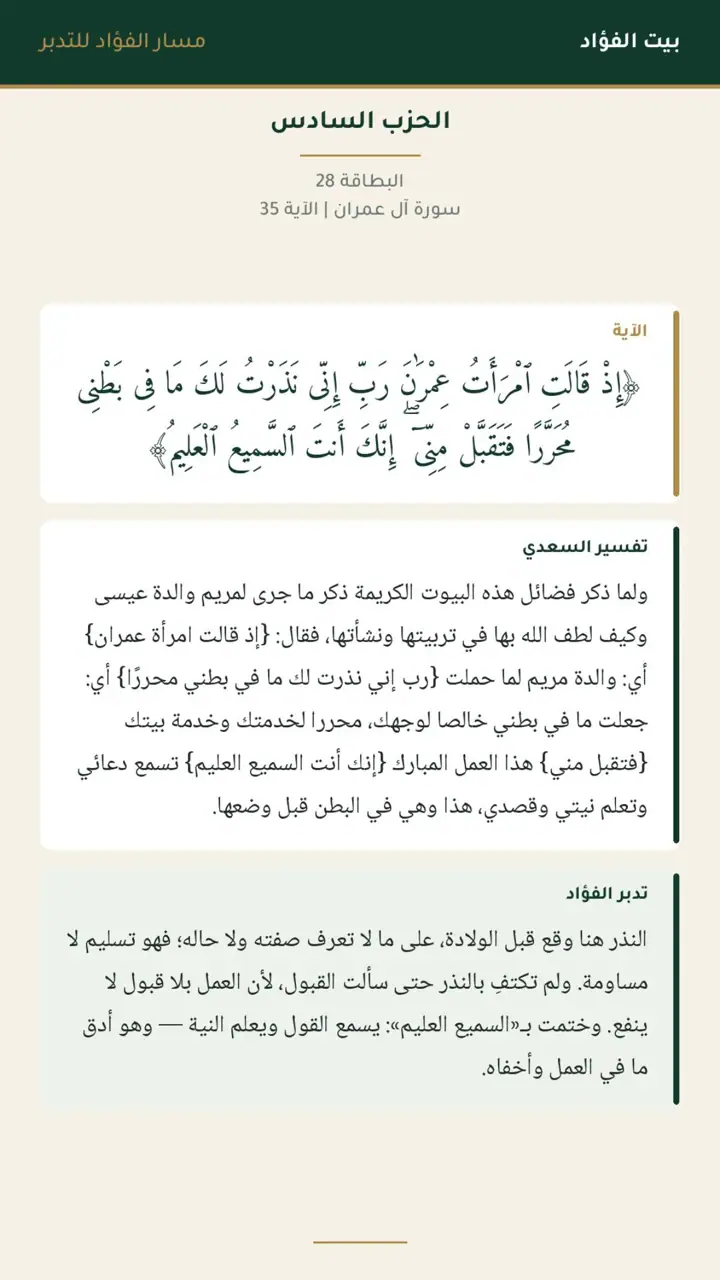 بيت الفؤاد
مسار الفؤاد للتدبر
الحزب السادس
البطاقة 28
سورة آل عمران | الآية 35
الآية
﴿إِذْ قَالَتِ ٱمْرَأَتُ عِمْرَٰنَ رَبِّ إِنِّى نَذَرْتُ لَكَ مَا فِى بَطْنِى
مُحَرَّرًا فَتَقَبَّلْ مِنِّىٓ ۖ إِنَّكَ أَنتَ ٱلسَّمِيعُ ٱلْعَلِيمُ﴾
تفسير السعدي
ولما ذكر فضائل هذه البيوت الكريمة ذكر ما جرى لمريم والدة عيسى
وكيف لطف الله بها في تربيتها ونشأتها، فقال: {إذ قالت امرأة عمران}
أي: والدة مريم لما حملت {رب إني نذرت لك ما في بطني محررًا} أي:
جعلت ما في بطني خالصا لوجهك، محررا لخدمتك وخدمة بيتك
{فتقبل مني} هذا العمل المبارك {إنك أنت السميع العليم} تسمع دعائي
وتعلم نيتي وقصدي، هذا وهي في البطن قبل وضعها.
تدبر الفؤاد
النذر هنا وقع قبل الولادة، على ما لا تعرف صفته ولا حاله؛ فهو تسليم لا
مساومة. ولم تكتفِ بالنذر حتى سألت القبول، لأن العمل بلا قبول لا
ينفع. وختمت بـ«السميع العليم»: يسمع القول ويعلم النية — وهو أدق
ما في العمل وأخفاه.